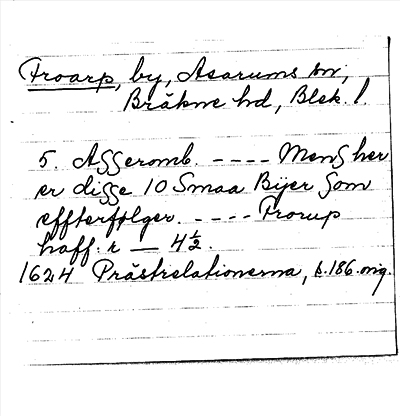 Froarp, by, Asarums sn,
Bräkne hd, Blek. l.
5. Aggeromb. ---- Menß her
er diße 10 Smaa Byer som
effterfølger. ---- Frorup
haff: r — 4½.
1624 Prästrelationerna, s. 186. orig.